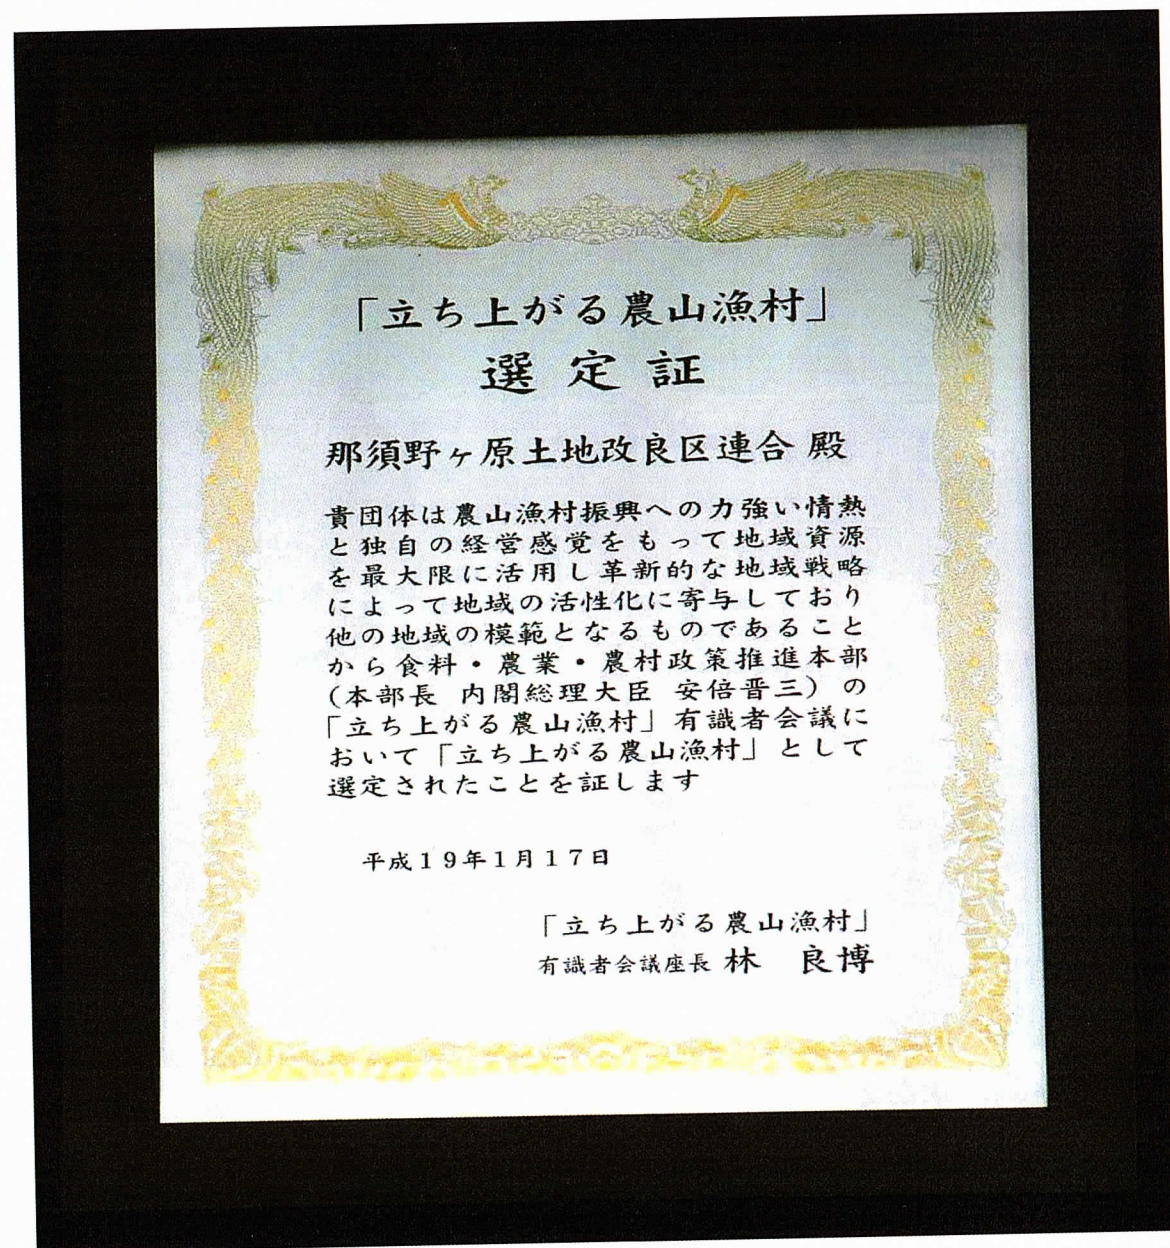 「立ち上がる農山漁村」
選定証
那須野ヶ原土地改良区連合 殿
貴団体は農山漁村振興への力強い情熱
と独自の経営感覚をもって地域資源
を最大限に活用し革新的な地域戦略
によって地域の活性化に寄与しており
他の地域の模範となるものであること
から食料・農業・農村政策推進本部
(本部長 内閣総理大臣 安倍晋三)の
「立ち上がる農山漁村」有識者会議に
おいて「立ち上がる農山漁村」として
選定されたことを証します
平成19年1月17日
「立ち上がる農山漁村」
有識者会議座長 林 良博